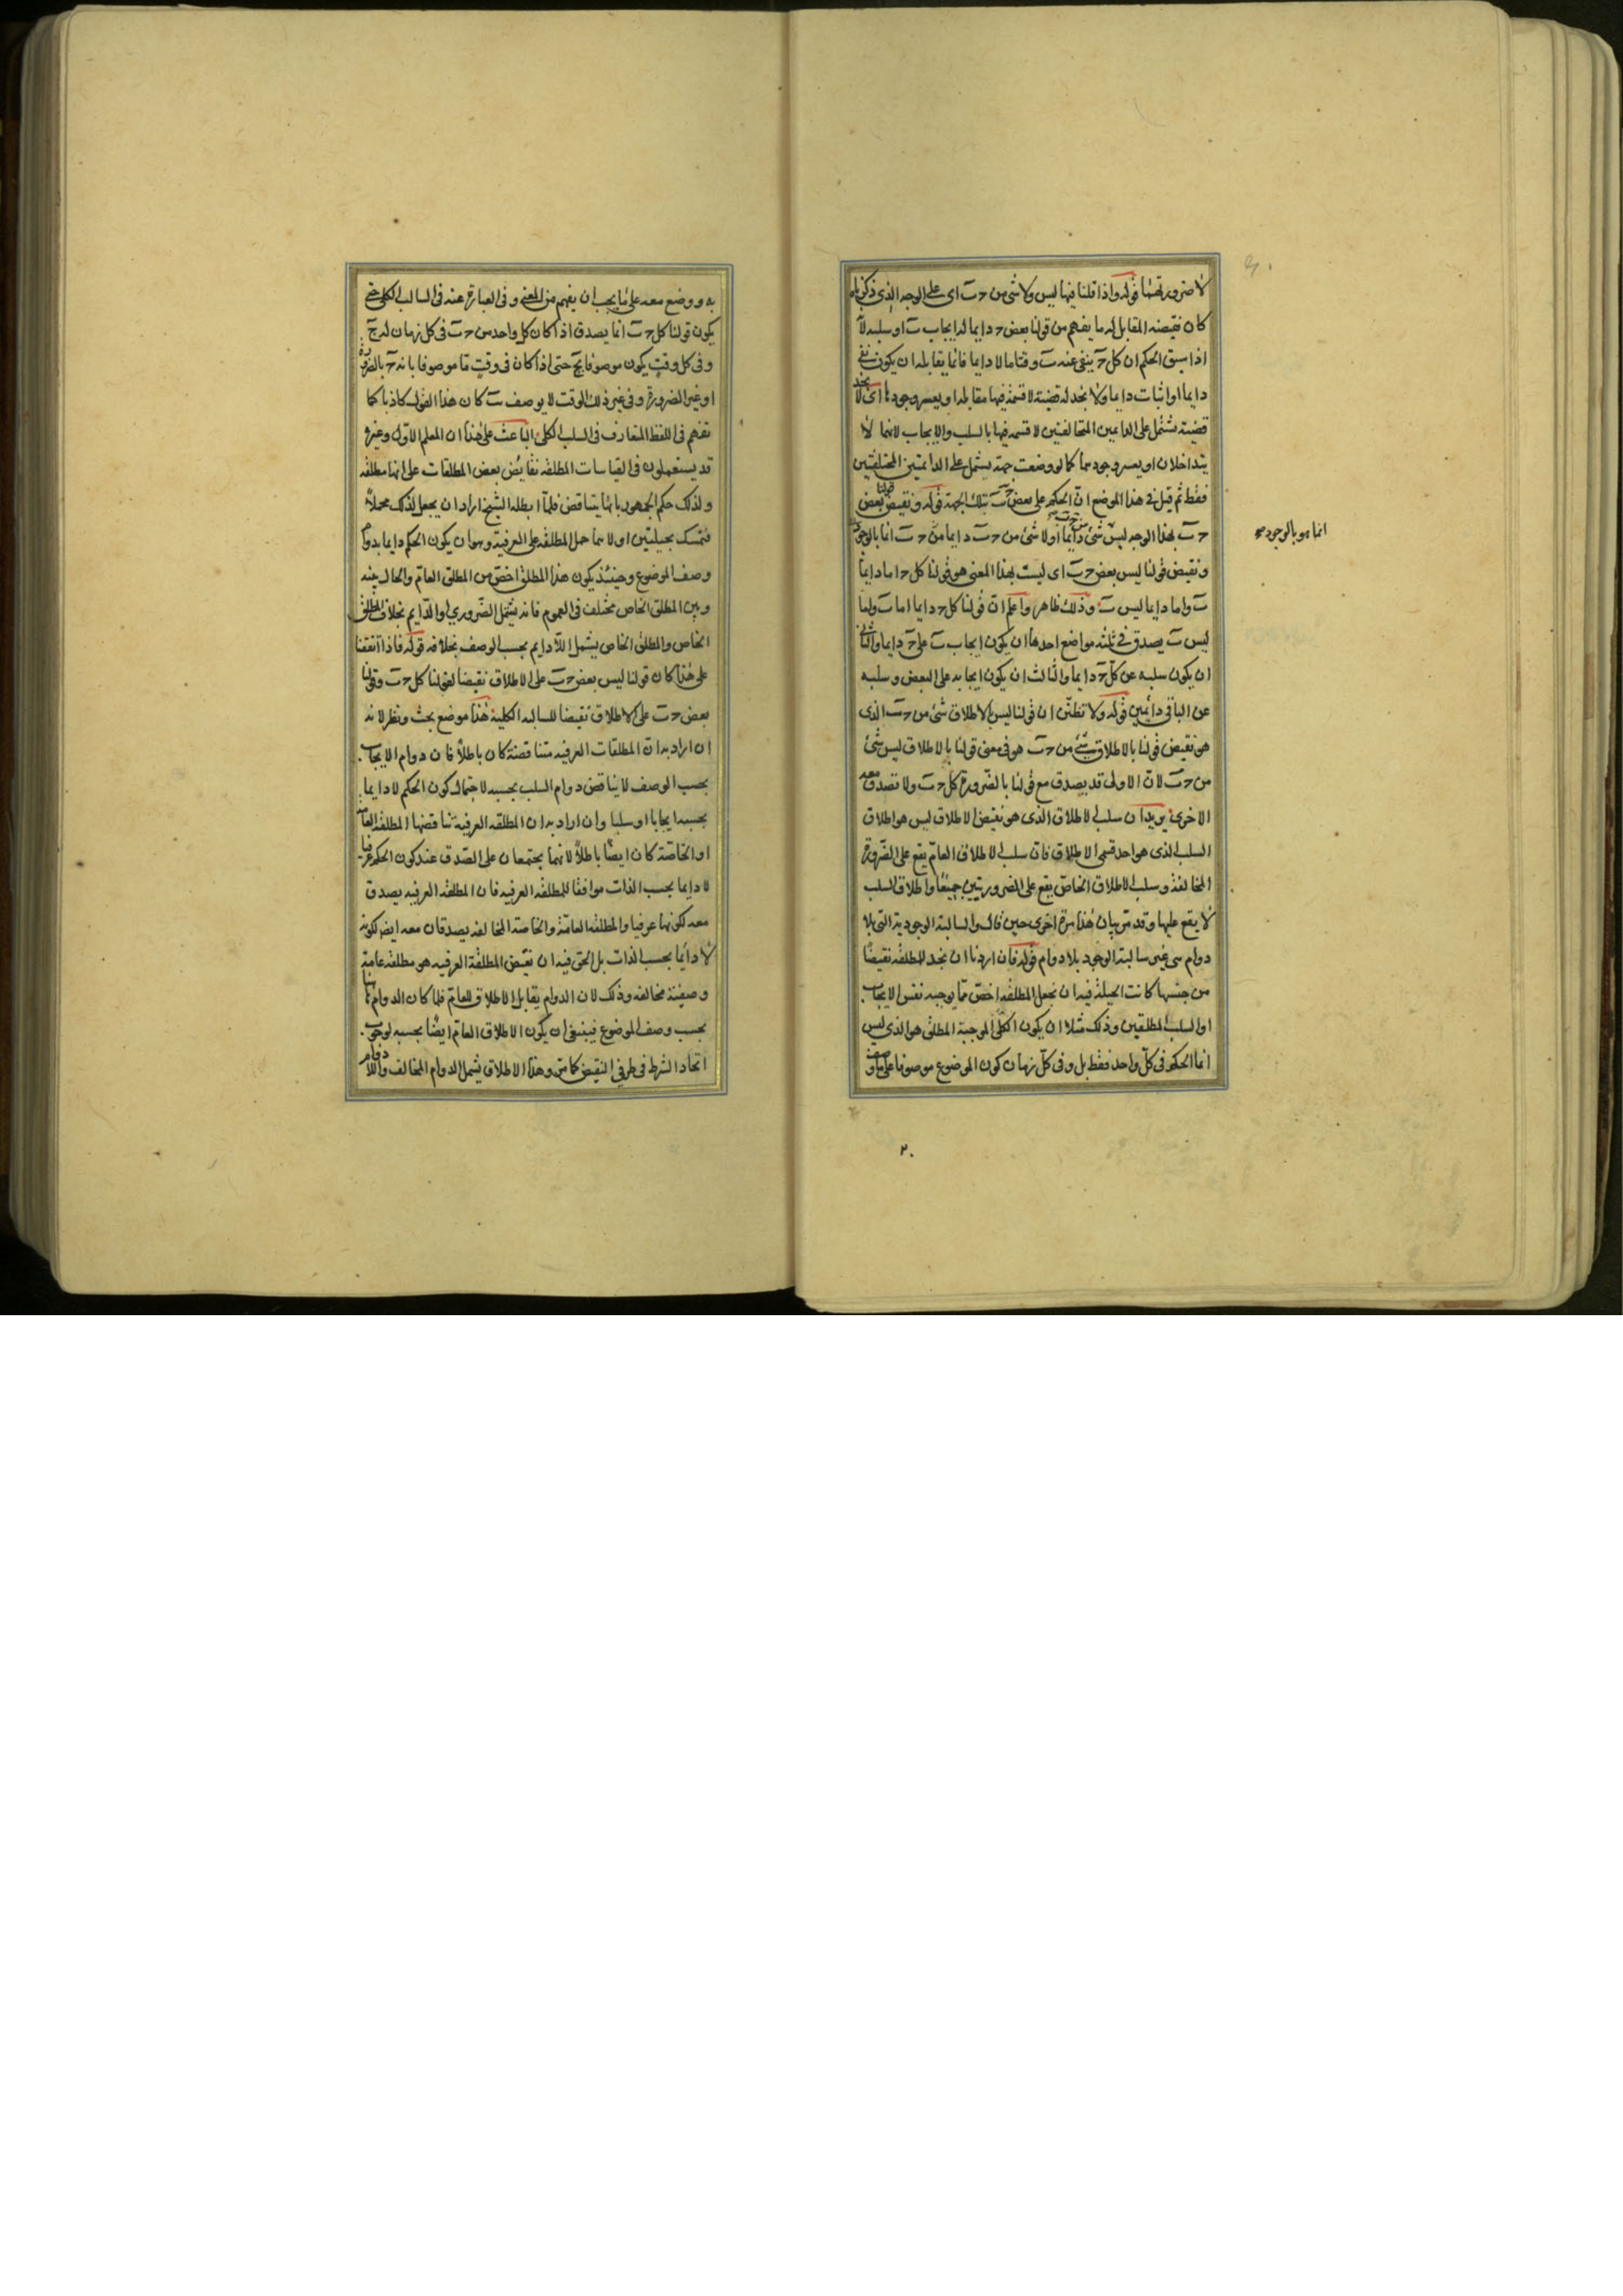 لا ضرورتهما قوله واذا قلنا فيها ليس ولا شئ من حـ ب اى على الوجه الذى ذكرناه
كان نقيضه المقابل له ما يفهم من قولنا بعض حـ دايما له ايجاب ب او سلبه لانه
اذا سبق الحكم ان كل حـ ينفى عنه ب وقتا ما لا دايما فانما يقابله ان يكون نفى
دايما او اثبات دايما ولا نجد له قضية لا قسمة فيها مقابله او يعسر وجودها اى لا نجد
قضية تشتمل على الدايمين المتخالفتين لا قسمه فيها بالسلب والايجاب لانهما لا
يتداخلان او يعسر وجودهما كما لو وضعت جهة يشتمل على الدائمتين المختلفتين
فقط ثم قيل فى هذا الموضع ان الحكم على بعض حـ ب بتلك الجهة قوله ونقيض قولنا بعض
حـ ب بهذا الوجه ليس شئ دايما اولا شئ من حـ ب دايما من حـ ب انما بالوجود
انما هو بالوجود صح
ونقيض قولنا ليس بعض حـ ب اى ليست بهذا المعنى هو قولنا كل حـ اما دايما
ب واما دايما ليس ب وذلك ظاهر واعلم ان قولنا كل حـ دايما اما ب واما
ليس ب يصدق فى ثلثه مواضع احدها ان يكون ايجاب ب على حـ دايما والثانى
ان يكون سلبه عن كل حـ دايما والثالث ان يكون ايجابه على البعض وسلبه
عن الباقى دائمين قوله ولا تظنن ان قولنا ليس بالاطلاق شئ من حـ ب الذى
هو نقيض قولنا بالاطلاق شئ من حـ ب هو فى معنى قولنا بالاطلاق ليس شئ
من حـ ب لان الاولى قد يصدق مع قولنا بالضرورة كل حـ ب ولا تصدق معه
الاخرى يريد ان سلب الاطلاق الذى هو نقيض الاطلاق ليس هو اطلاق
السلب الذى هو احد قسمى الاطلاق فان سلب الاطلاق العام يقع على الضرورة
المخالفة وسلب الاطلاق الخاص يقع على الضرورتيين جميعا واطلاق السلب
لا يقع عليها وقد مر بيان هذا مرة اخرى حين قال والسالبة الوجودية التى بلا
دوام هى غير سالبة الوجود بلا دوام قوله فان اردنا ان نجد للمطلقه نقيضا
من جنسها كانت الحيلة فيه ان نجعل المطلقه اخص مما يوجبه نفس الايجاب
او السلب المطلقين وذلك مثلا ان يكون الكلى الموجبة المطلق هو الذى ليس
انما الحكم فى كل واحد فقط بل وفى كل زمان كون الموضوع موصوفا على ما وصف
به ووضع معه على ما يجب ان يفهم من المعنى وفى العبارة عنه فى السالب الكلى حتى
يكون قولنا كل حـ ب انما يصدق اذا كان كل واحد من حـ ب فى كل زمان له حـ
وفى كل وقت يكون موصوفا بحـ حتى اذا كان فى وقت ما موصوفا بانه حـ بالضرورة
او غير الضرورة وفى غير ذلك الوقت لا يوصف ب كان هذا القول كاذبا كما
تفهم فى اللفظ المتعارف فى السلب الكلى الباعث على هذا ان المعلم الاول وغيره
قد يستعملون فى القياسات المطلقه نقايض بعض المطلقات على انها مطلقه
ولذلك حكم الجمهور بانها يتناقض فلما ابطله الشيخ اراد ان يجعل لذلك محملا
فتمسك بحيلتين اولاهما حمل المطلقه على العرفية وهو ان يكون الحكم دايما بدوام
وصف الموضوع وحينئذ يكون هذا المطلق اخص من المطلق العام والحال بينه
وبين المطلق الخاص مختلف فى العموم فانه يشتمل الضرورى او الدايم بخلاف المطلق
الخاص والمطلق الخاص يشتمل اللادايم بحسب الوصف بخلافه قوله فاذا اتفقنا
على هذا كان قولنا ليس بعض حـ ب على الاطلاق نقيضا لقولنا كل حـ ب وقولنا
بعض حـ ب على الاطلاق نقيضا للسالبه الكلية هذا موضع بحث ونظر لانه
ان اراد به ان المطلقات العرفيه متناقضة كان باطلا فان دوام الايجاب
بحسب الوصف لا يناقض دوام السلب بحسبه لاحتمال كون الحكم لا دايما
بحسبه ايجابا او سلبا وان اراد به ان المطلقه العرفية تناقضها المطلقه العامة
او الخاصة كان ايضا باطلا لانهما يجتمعان على الصدق عند كون الحكم عرفيا
لا دايما بحسب الذات موافقا للمطلقه العرفيه فان المطلقه العرفيه يصدق
معه لكونها عرفيا والمطلقه العامة والخاصة المخالفه يصدقان معه ايضا لكونه
لا دائما بحسب الذات بل الحق فيه ان نقيض المطلقة العرفيه هو مطلقه عامة
وصفية مخالفه وذلك لان الدوام يقابل الاطلاق العام فلما كان الدوام هنا
بحسب وصف الموضوع فينبغى ان يكون الاطلاق العام ايضا بحسبه لوجوب
اتحاد الشرط فى طرفى النقيض كما مر وهذا الاطلاق يشمل الدوام المخالف واللادوام
٢٠